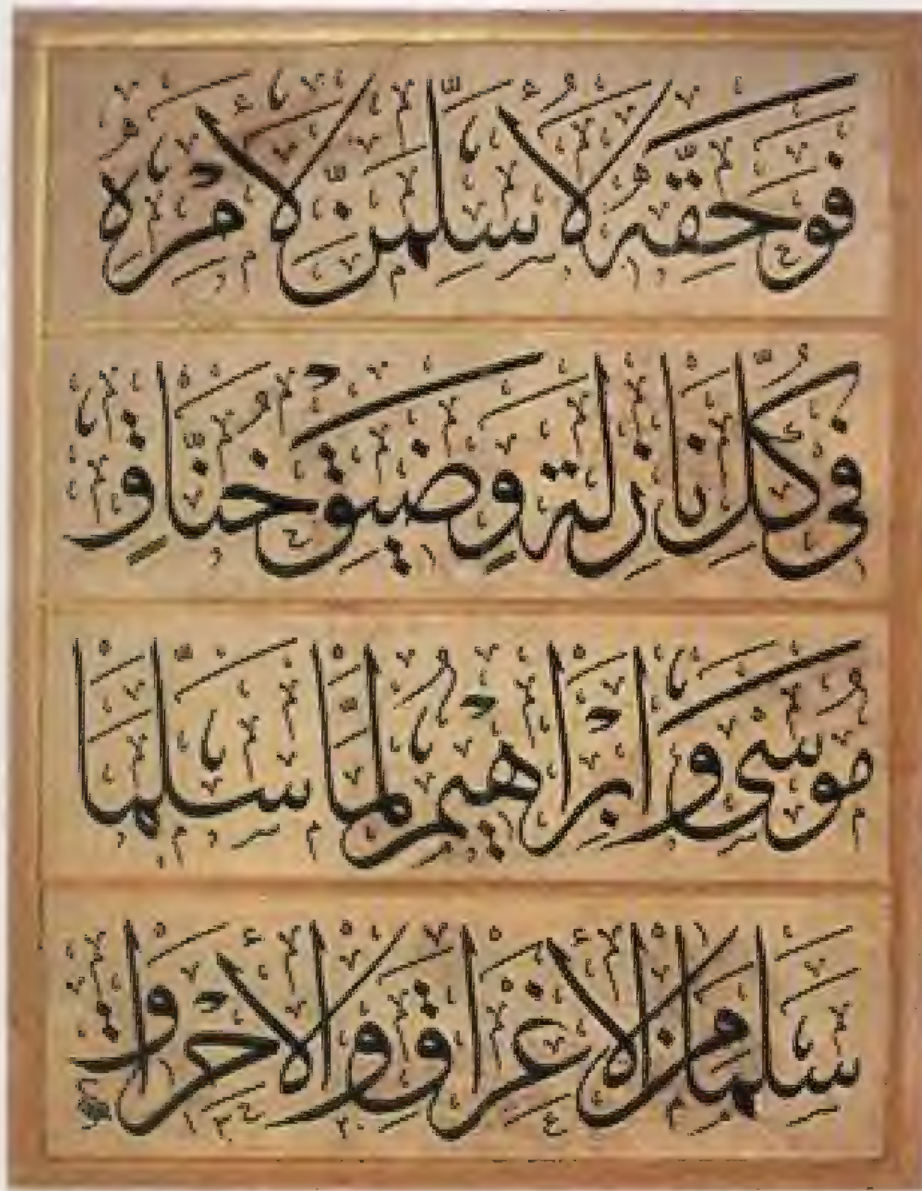 فوحقه لأسلمن لأمره
في كل نازلة وضيق خناق
موسى وإبراهيم لما سلما
سلما من الإغراق والإحراق